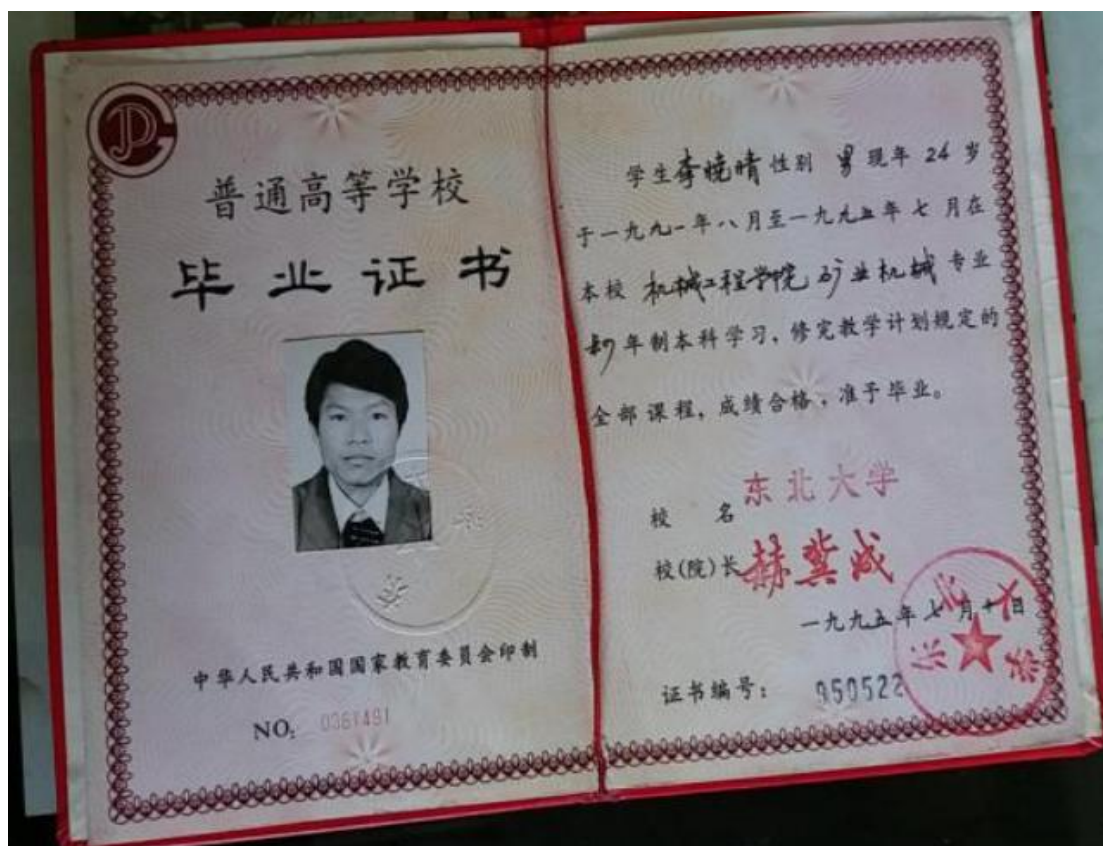 普通高等学校
毕业证书
中华人民共和国国家教育委员会印制
NO: 0361491
学生李晓晴性别 男 现年 24 岁
于一九九一年八月至一九九五年七月在
本校 机械工程学院 矿业机械 专业
四年制本科学习，修完教学计划规定的
全部课程，成绩合格，准予毕业。
校 名 东北大学
校(院)长 赫冀成
一九九五年七月十日
证书编号： 950522